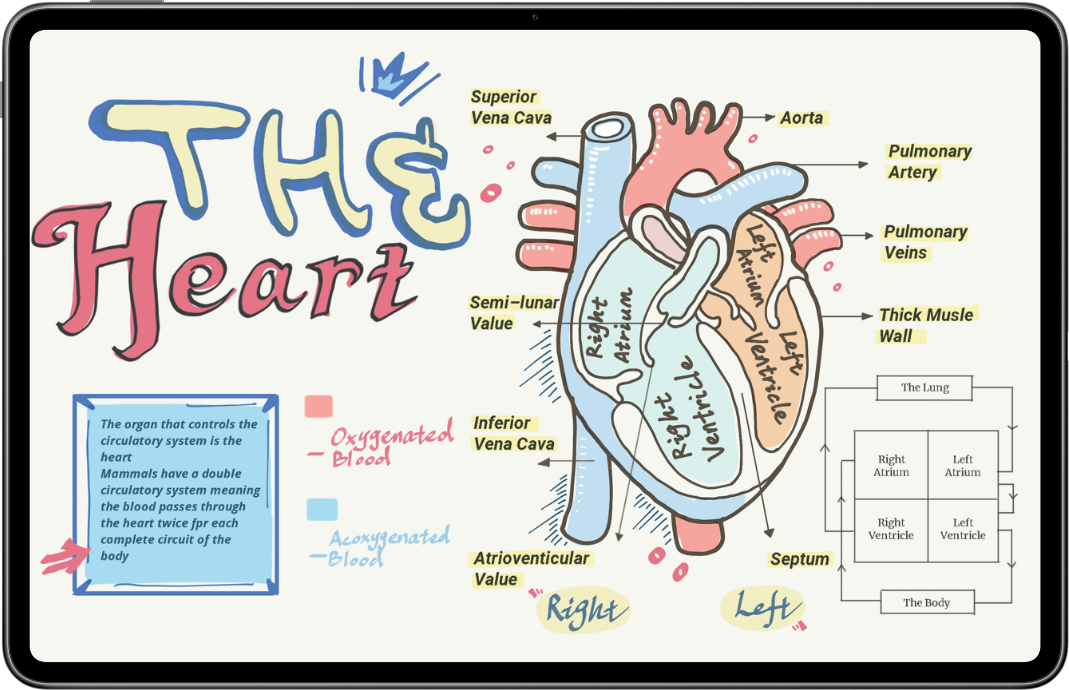 THE
Heart
Superior
Vena Cava
Aorta
Pulmonary
Artery
Pulmonary
Veins
Semi-lunar
Value
Thick Musle
Wall
Left
Atrium
Right
Atrium
Left
Ventricle
Right
Ventricle
Inferior
Vena Cava
Atrioventicular
Value
Septum
Right
Left
The organ that controls the
circulatory system is the
heart
Mammals have a double
circulatory system meaning
the blood passes through
the heart twice fpr each
complete circuit of the
body
Oxygenated
Blood
Acoxygenated
Blood
The Lung
Right
Atrium
Left
Atrium
Right
Ventricle
Left
Ventricle
The Body